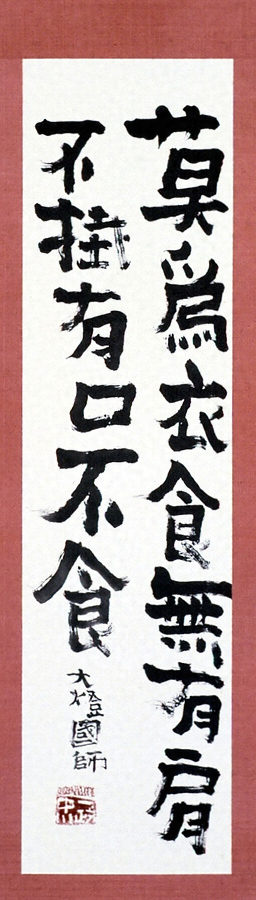 莫爲衣食無有肩
不掛有口不食
大燈國師